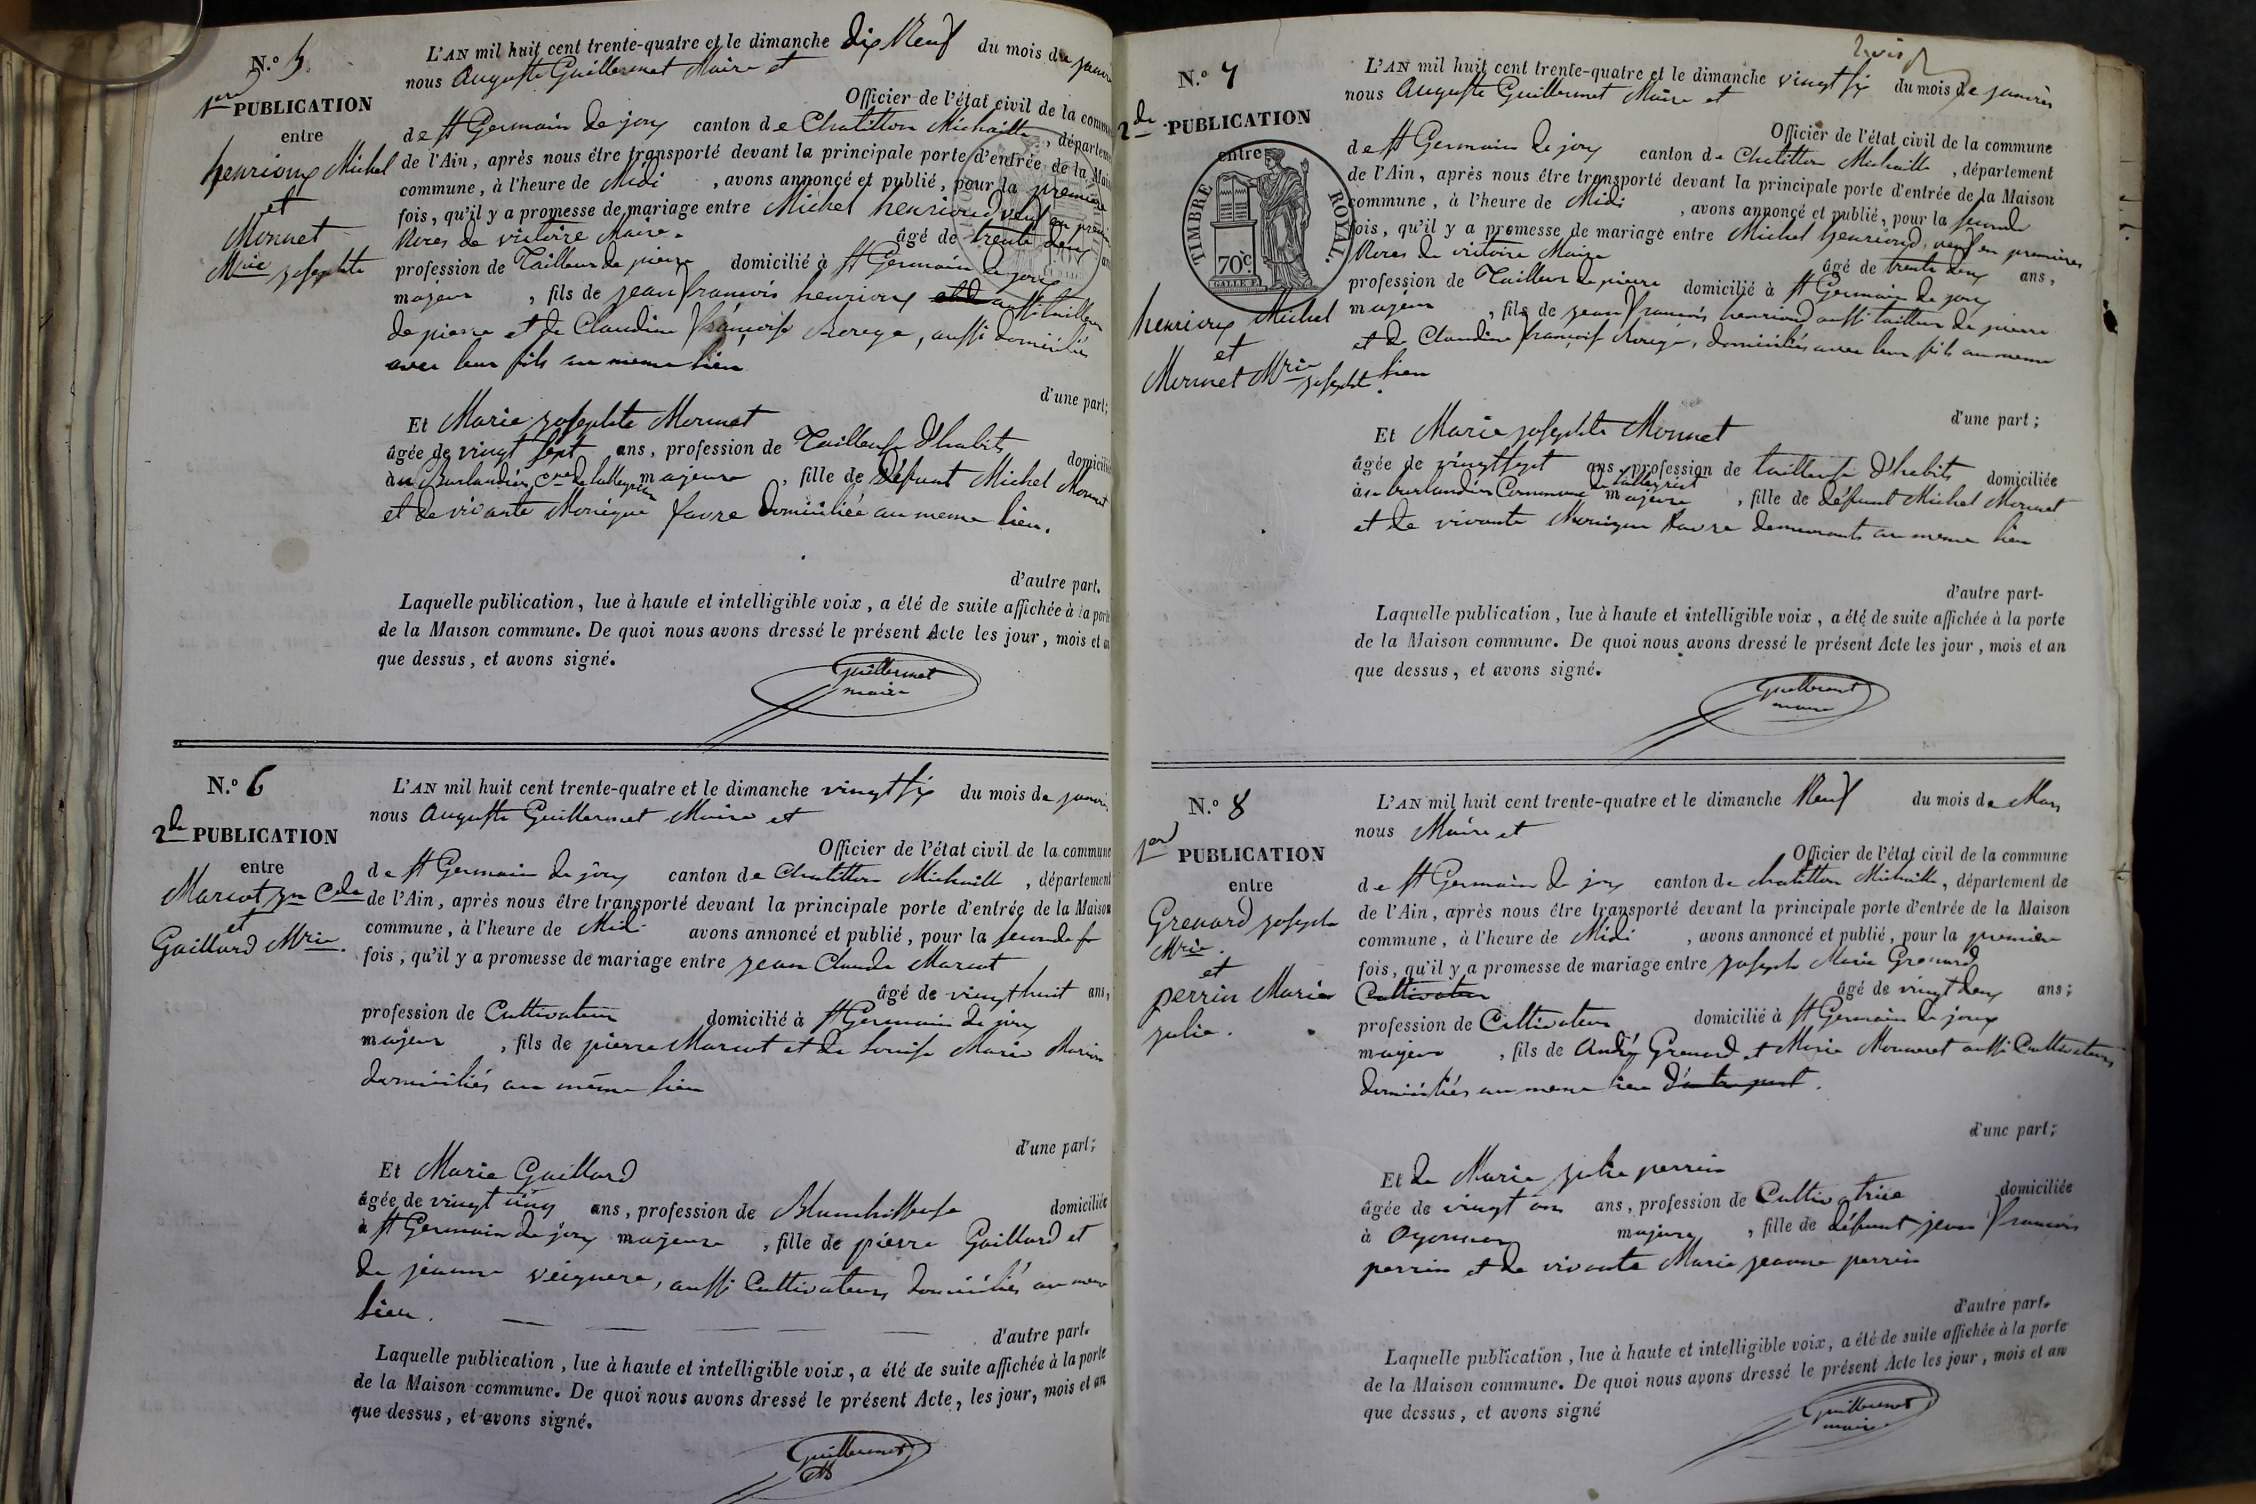 N.º 5
1ère PUBLICATION
entre
henrioux Michel
et
Monnet
Mrie josephte
L'AN mil huit cent trente-quatre et le dimanche dix Neuf du mois de janvi
nous Auguste Guillermet Maire et
Officier de l'état civil de la commune
de St Germain de joux canton de Chatillon Michaille, départeme
de l'Ain, après nous être transporté devant la principale porte d'entrée de la Mai
commune, à l'heure de Midi, avons annoncé et publié, pour la premiere
fois, qu'il y a promesse de mariage entre Michel henrioud veuf en premi
Noces de victoire Maire. âgé de trente deux ans
profession de Tailleur de pierre domicilié à St Germain de joux
majeur, fils de jean françois henrioux aussi tailleur
de pierre et de Claudine françoise Rorege, aussi domiciliés
avec leur fils au meme lieu
d'une part;
Et Marie josephte Monnet
âgée de vingt sept ans, profession de Tailleuse d'habits domicilié
au Burlandier, Cne de Lalleyriat majeure, fille de Défunt Michel Monnet
et de vivante Monique favre domiciliée au meme lieu.
d'autre part.
Laquelle publication, lue à haute et intelligible voix, a été de suite affichée à la porte
de la Maison commune. De quoi nous avons dressé le présent Acte les jour, mois et an
que dessus, et avons signé.
Guillermet
maire
N.º 6
2de PUBLICATION
entre
Marcot jn Cde
et
Gaillard Mrie.
L'AN mil huit cent trente-quatre et le dimanche vingt six du mois de janvier
nous Auguste Guillermet Maire et
Officier de l'état civil de la commune
de St Germain de joux canton de Chatillon Michaille, département
de l'Ain, après nous être transporté devant la principale porte d'entrée de la Maison
commune, à l'heure de Midi avons annoncé et publié, pour la seconde
fois, qu'il y a promesse de mariage entre jean Claude Marcot
âgé de vingt huit ans,
profession de Cultivateur domicilié à St Germain de joux
majeur, fils de pierre Marcot et de Louise Marie
domiciliés au même lieu
d'une part;
Et Marie Gaillard
âgée de vingt cinq ans, profession de Blanchisseuse domiciliée
à St Germain de joux majeure, fille de pierre Gaillard et
de jeanne veignere, aussi Cultivateurs domiciliés au meme
lieu.
d'autre part.
Laquelle publication, lue à haute et intelligible voix, a été de suite affichée à la porte
de la Maison commune. De quoi nous avons dressé le présent Acte, les jour, mois et an
que dessus, et avons signé.
Guillermet
N.º 7
2de PUBLICATION
entre
TIMBRE ROYAL.
70c.
henrioux Michel
et
Monnet Mrie
josephte.
L'AN mil huit cent trente-quatre et le dimanche vingt six du mois de janvier
nous Auguste Guillermet Maire et
Officier de l'état civil de la commune
de St Germain de joux canton de Chatillon Michaille, département
de l'Ain, après nous être transporté devant la principale porte d'entrée de la Maison
commune, à l'heure de Midi, avons annoncé et publié, pour la seconde
fois, qu'il y a promesse de mariage entre Michel henrioud, veuf en premieres
Noces de victoire Maire âgé de trente deux ans,
profession de Tailleur de pierre domicilié à St Germain de joux
majeur, fils de jean françois henrioud aussi tailleur de pierre
et de Claudine françoise Rorege, domiciliés avec leur fils au meme
lieu
d'une part;
Et Marie josephte Monnet
âgée de vingt sept ans, profession de tailleuse d'habits domiciliée
au burlandier Commune de Lalleyriat majeure, fille de défunt Michel Monnet
et de vivante Monique Favre demeurants au meme lieu
d'autre part-
Laquelle publication, lue à haute et intelligible voix, a été de suite affichée à la porte
de la Maison commune. De quoi nous avons dressé le présent Acte les jour, mois et an
que dessus, et avons signé.
Guillermet
maire
N.º 8
1ere PUBLICATION
entre
Grenard joseph
Mrie.
et
perrin Marie
julie.
L'AN mil huit cent trente-quatre et le dimanche Neuf du mois de Mars
nous Maire et
Officier de l'état civil de la commune
de St Germain de joux canton de chatillon Michaille, département de
de l'Ain, après nous être transporté devant la principale porte d'entrée de la Maison
commune, à l'heure de Midi, avons annoncé et publié, pour la premiere
fois, qu'il y a promesse de mariage entre joseph Marie Grenard
Cultivateur âgé de vingt deux ans;
profession de Cultivateur domicilié à St Germain de joux
majeur, fils de André Grenard et Marie Monneret aussi Cultivateurs
domiciliés au meme lieu d'autre part.
d'une part;
Et de Marie julie perrin
âgée de vingt un ans, profession de Cultivatrice domiciliée
à Oyonnax majeure, fille de défunt jean françois
perrin et de vivante Marie jeanne perrin
d'autre part.
Laquelle publication, lue à haute et intelligible voix, a été de suite affichée à la porte
de la Maison commune. De quoi nous avons dressé le présent Acte les jour, mois et an
que dessus, et avons signé
Guillermet
maire